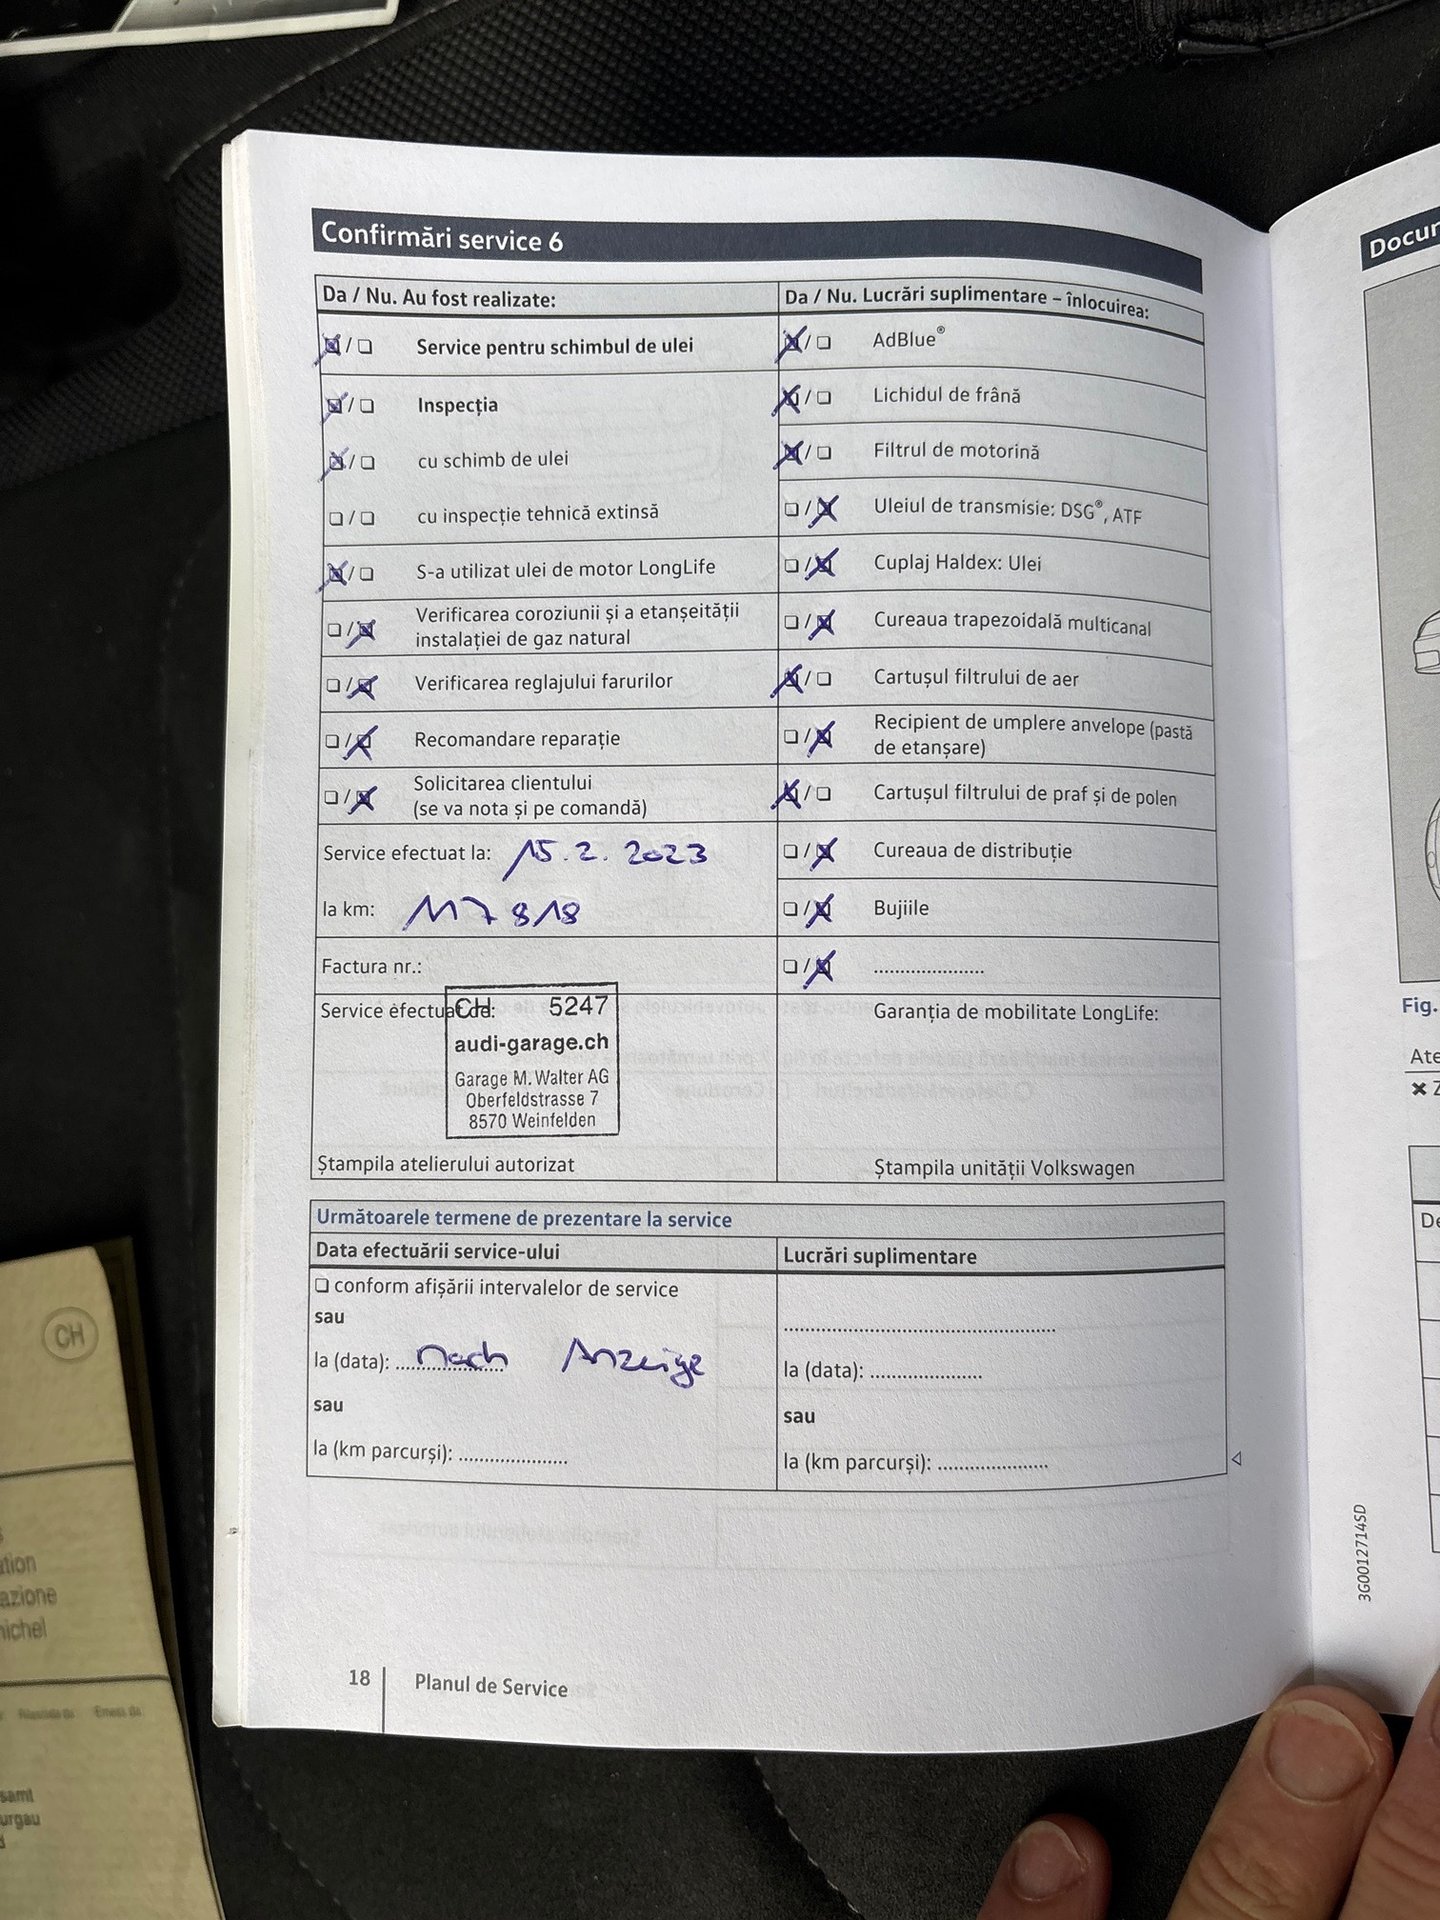 Confirmări service 6
Da / Nu. Au fost realizate:
Service pentru schimbul de ulei
Inspecția
cu schimb de ulei
cu inspecție tehnică extinsă
S-a utilizat ulei de motor LongLife
Verificarea coroziunii și a etanșeității
instalației de gaz natural
Verificarea reglajului farurilor
Recomandare reparație
Solicitarea clientului
(se va nota și pe comandă)
Service efectuat la: 15.2.2023
la km: 117 818
Factura nr.:
Service efectuat de:
CH 5247
audi-garage.ch
Garage M. Walter AG
Oberfeldstrasse 7
8570 Weinfelden
Ștampila atelierului autorizat
Da / Nu. Lucrări suplimentare – înlocuirea:
AdBlue®
Lichidul de frână
Filtrul de motorină
Uleiul de transmisie: DSG®, ATF
Cuplaj Haldex: Ulei
Cureaua trapezoidală multicanal
Cartușul filtrului de aer
Recipient de umplere anvelope (pastă
de etanșare)
Cartușul filtrului de praf și de polen
Cureaua de distribuție
Bujiile
.....................
Garanția de mobilitate LongLife:
Ștampila unității Volkswagen
Următoarele termene de prezentare la service
Data efectuării service-ului
conform afișării intervalelor de service
sau
la (data): nach Anzeige
sau
la (km parcurși): .....................
Lucrări suplimentare
la (data): .....................
sau
la (km parcurși): .....................
18
Planul de Service
3G0012714SD
Docur
Fig.
Ate
De
CH
ation
azione
nichel
samt
urgau